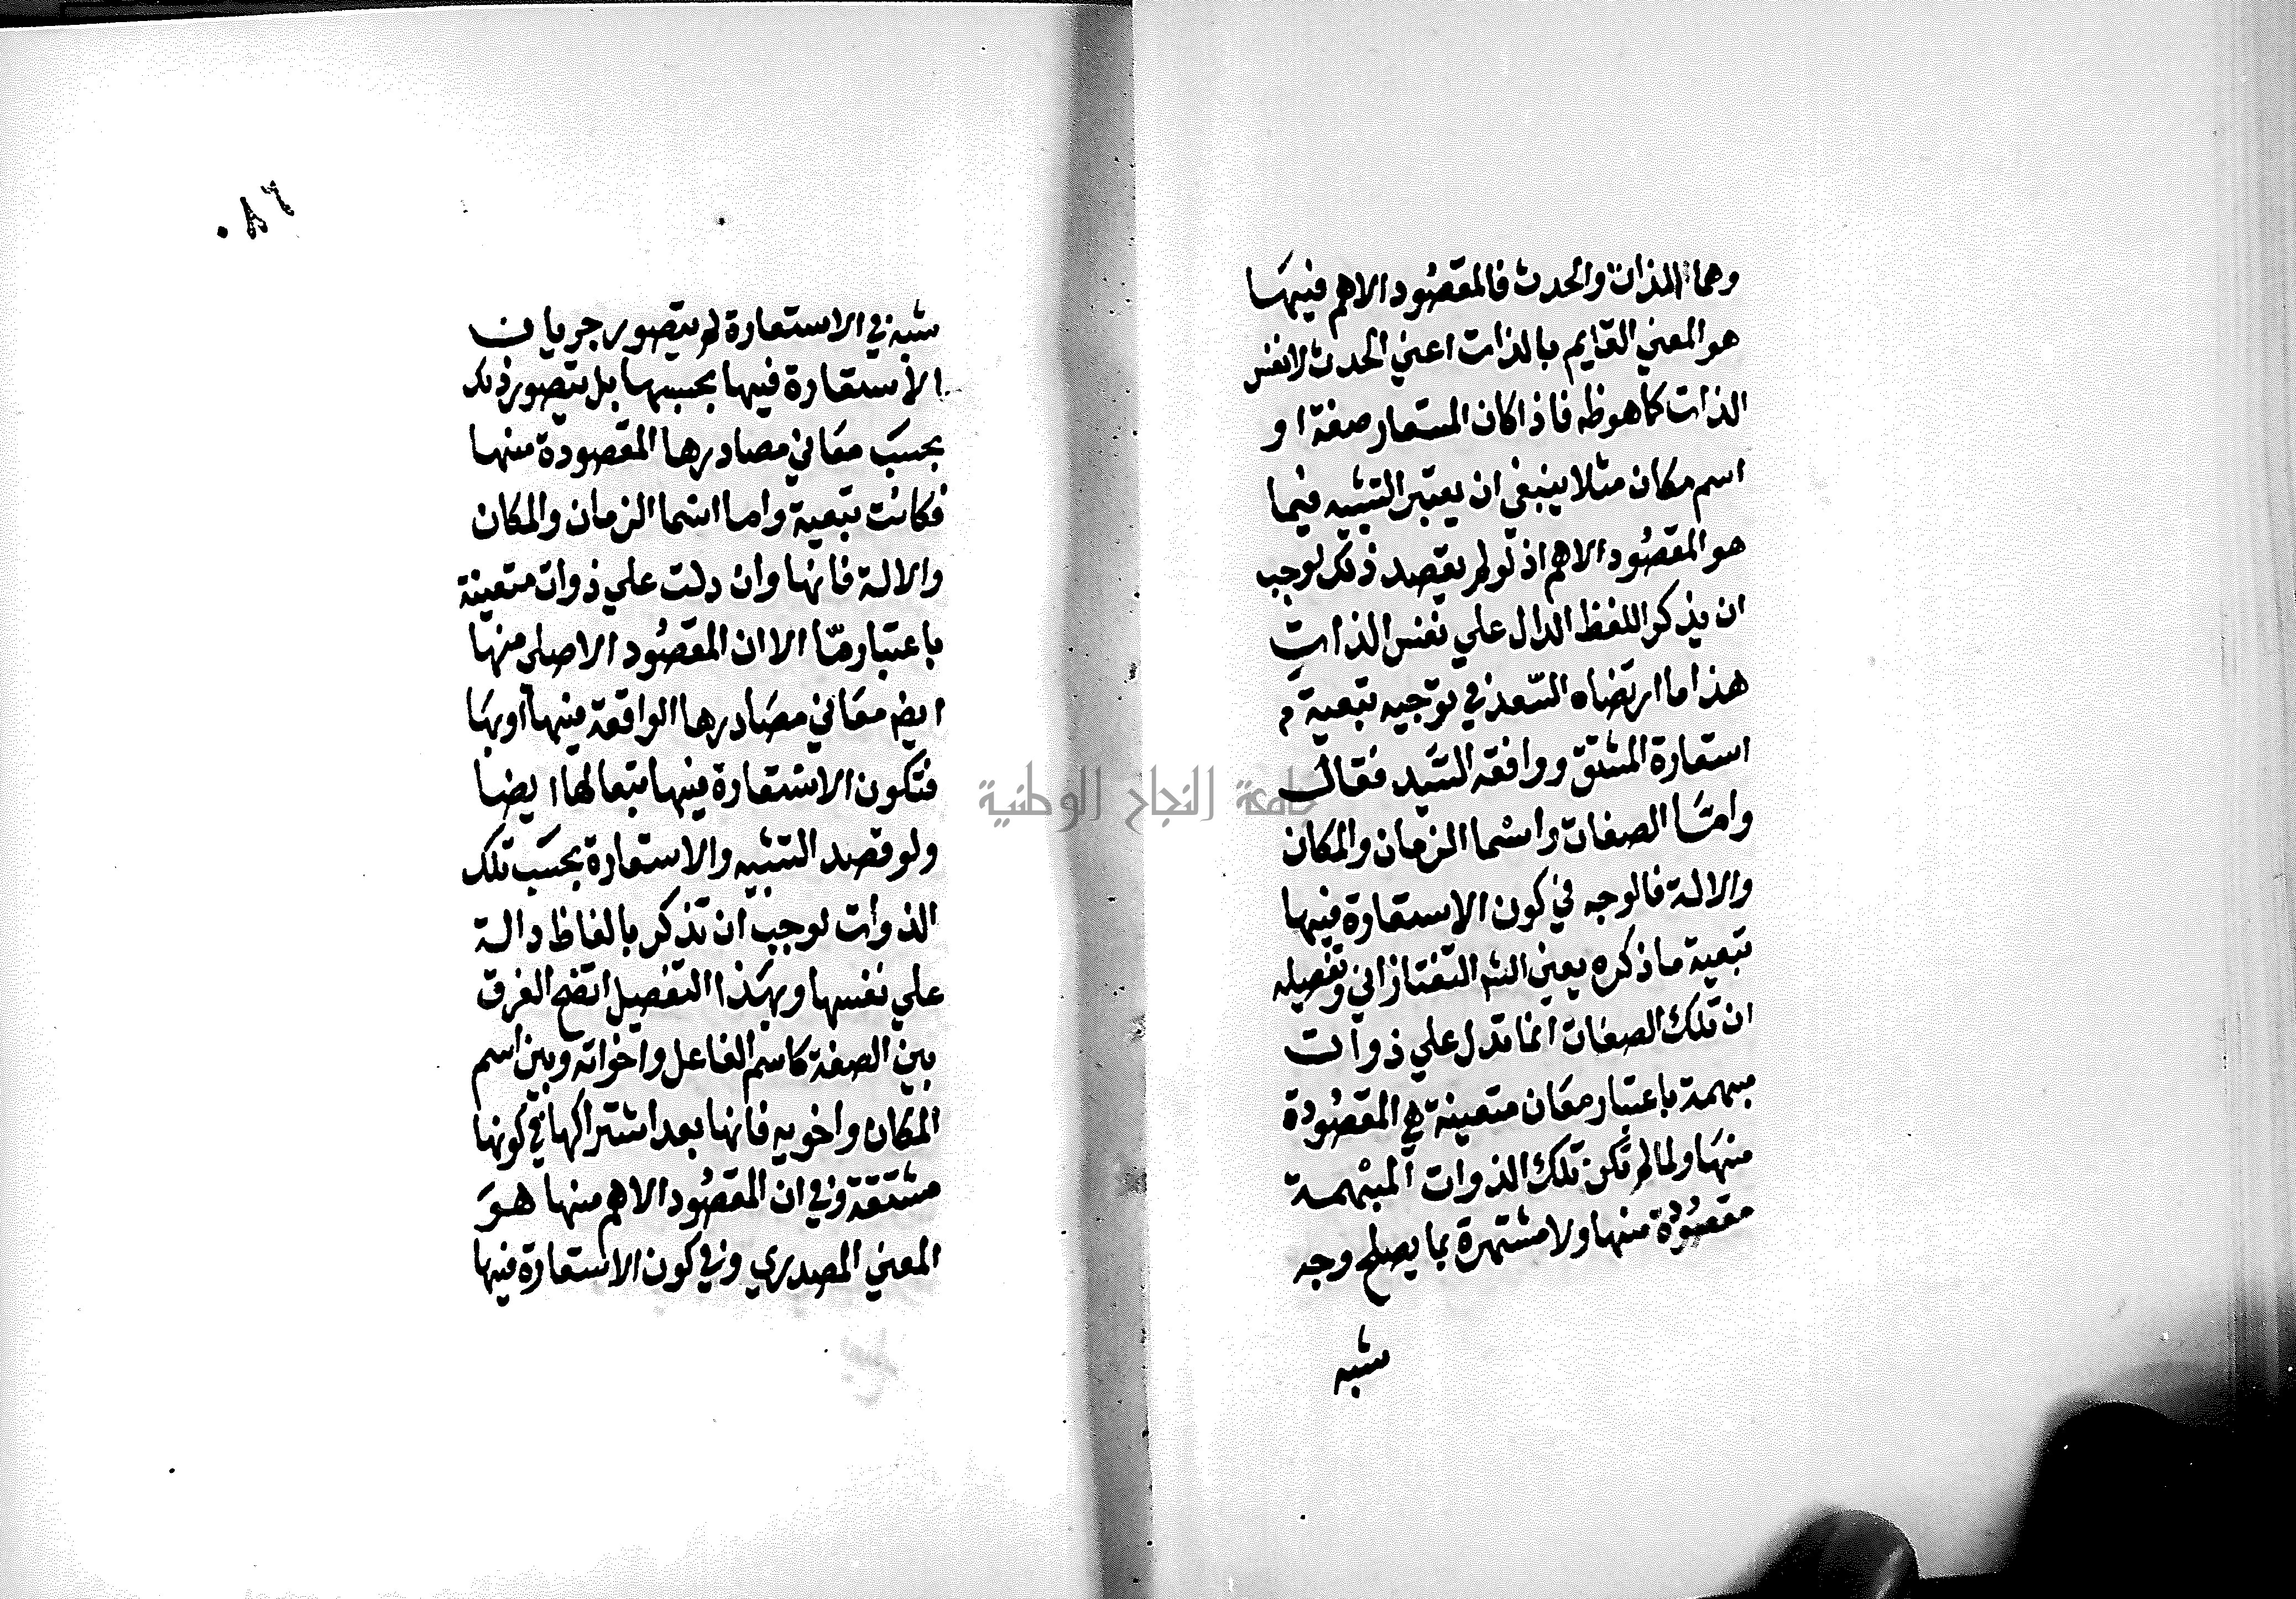 وهما الذات والحدث فالمقصود الاهم فيها
هو المعني القايم بالذات اعني الحدث لا نفس
الذات كما هو ظه فاذا كان المستعار صفة او
اسم مكان مثلا ينبغي ان يعتبر التشبيه فيما
هو المقصود الاهم اذ لو لم يقصد ذلك لوجب
ان يذكر اللفظ الدال علي نفس الذات
هذا ما ارتضاه السعد في توجيه تبعية م
استعارة المشتق ووافقه السيد فقال
واما الصفات واسما الزمان والمكان
والالة فالوجه في كون الاستعارة فيها
تبعية ما ذكره يعني الشم التفتازاني وتفصيله
ان تلك الصفات انما تدل علي ذوات
مبهمة باعتبار معان متعينة هي المقصودة
منها ولما لم تكن تلك الذوات المبهمة
مقصودة منها ولا مشتهرة بما يصلح وجه
شبه
٨٦
شبه في الاستعارة لم يتصور جريان
الاستعارة فيها بحسبها بل يتصور ذلك
بحسب معاني مصادرها المقصودة منها
فكانت تبعية واما اسما الزمان والمكان
والالة فانها وان دلت علي ذوات متعينة
باعتبار ما الا ان المقصود الاصلي منها
ايضم معاني مصادرها الواقعة فيها او بها
فتكون الاستعارة فيها تبعا لها ايضا
ولو قصد التشبيه والاستعارة بحسب تلك
الذوات لوجب ان تذكر بالفاظ دالة
علي نفسها وبهذا التفصيل اتضح الفرق
بين الصفة كاسم الفاعل واخواته وبين اسم
المكان واخويه فانها بعد اشتراكها في كونها
مشتقة وفي ان المقصود الاهم منها هو
المعني المصدري وفي كون الاستعارة فيها
جامعة النجاح الوطنية